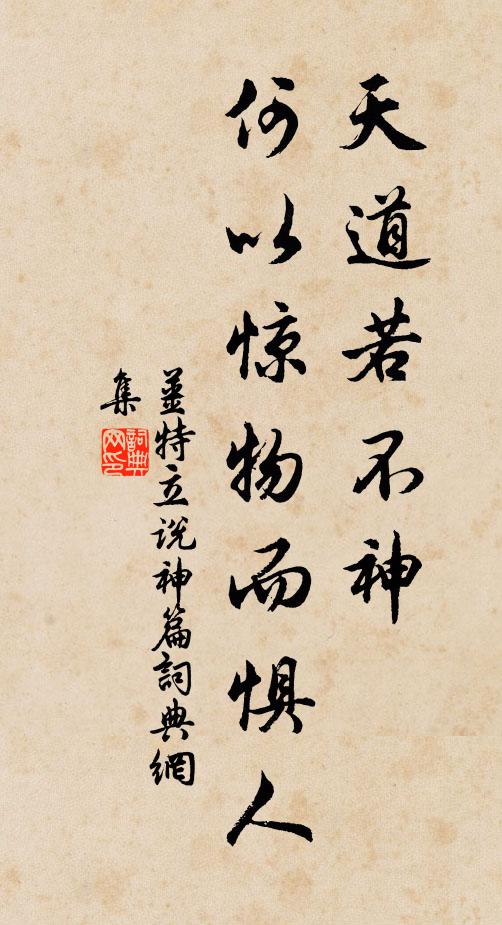 天道若不神
何以惊物而惧人
姜特立说神篇詞典網
集
詞典
网印